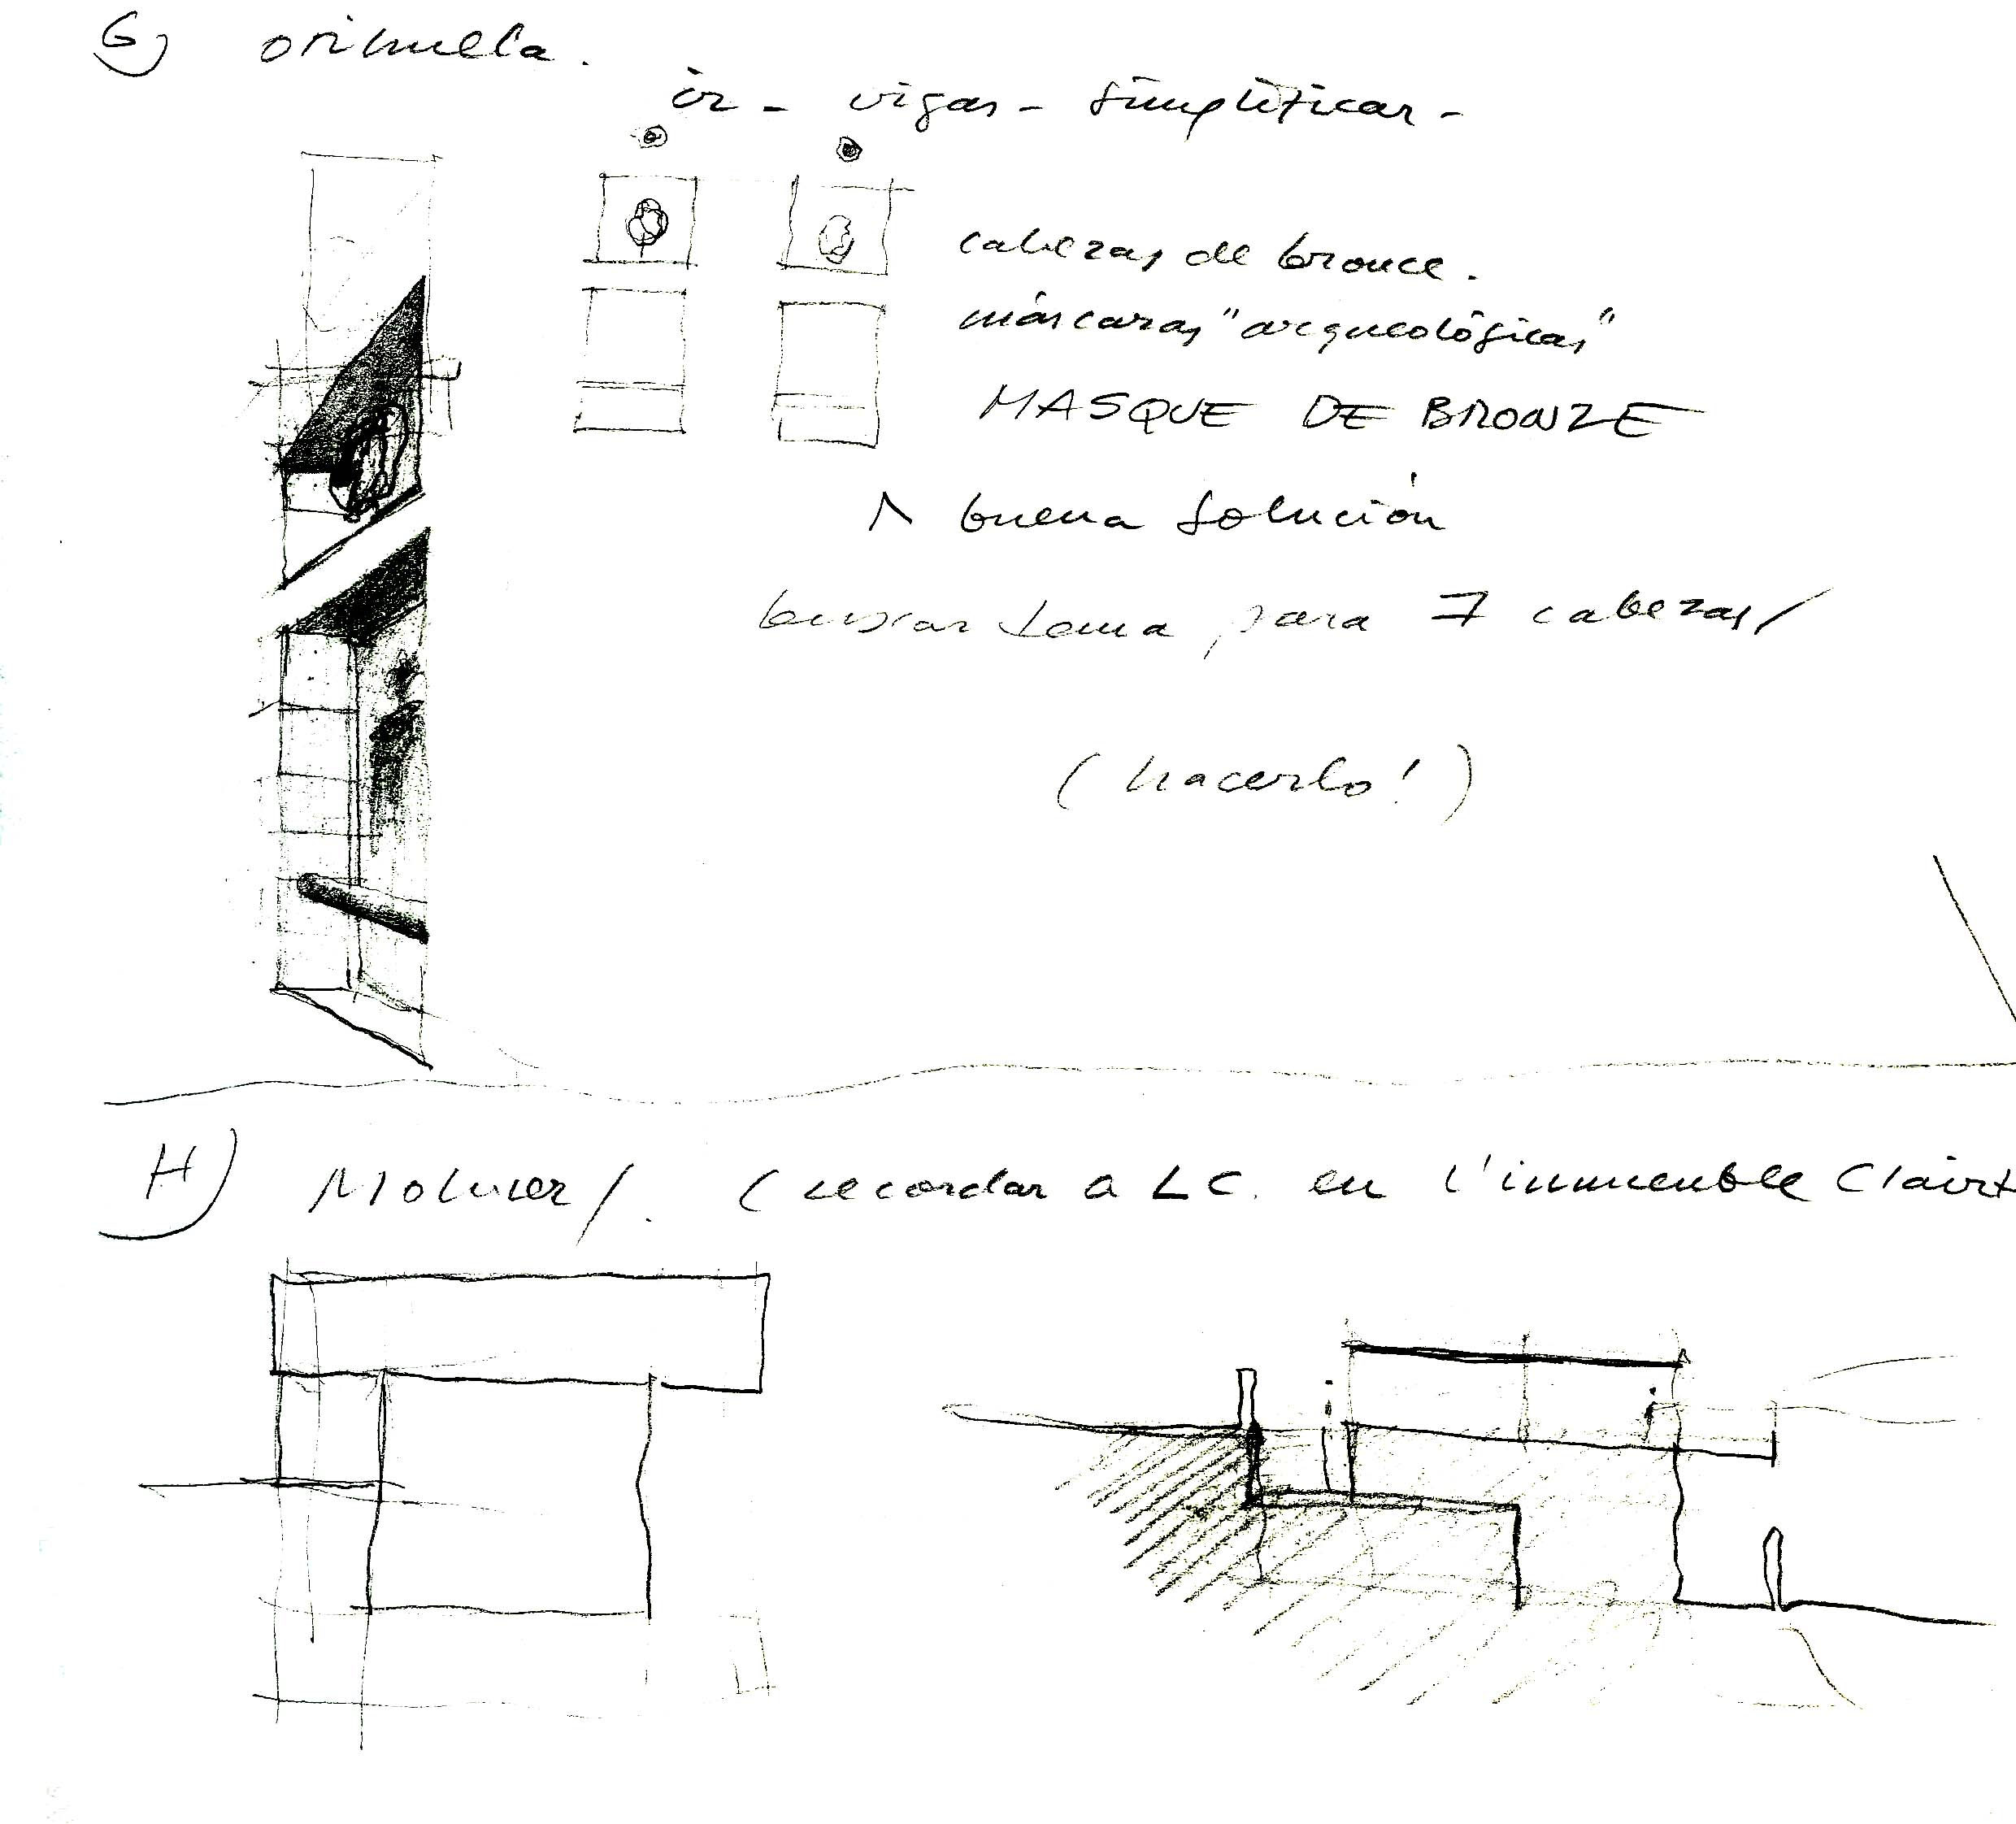 G) orihuela.
ir - vigas - simplificar -
cabezas de bronce.
máscaras "arqueológicas"
MASQUE DE BRONZE
buena solución
buscar tema para 7 cabezas/
(hacerlo!)
H) Moluser/. (recordar a LC. en l'inmueuble Clairt